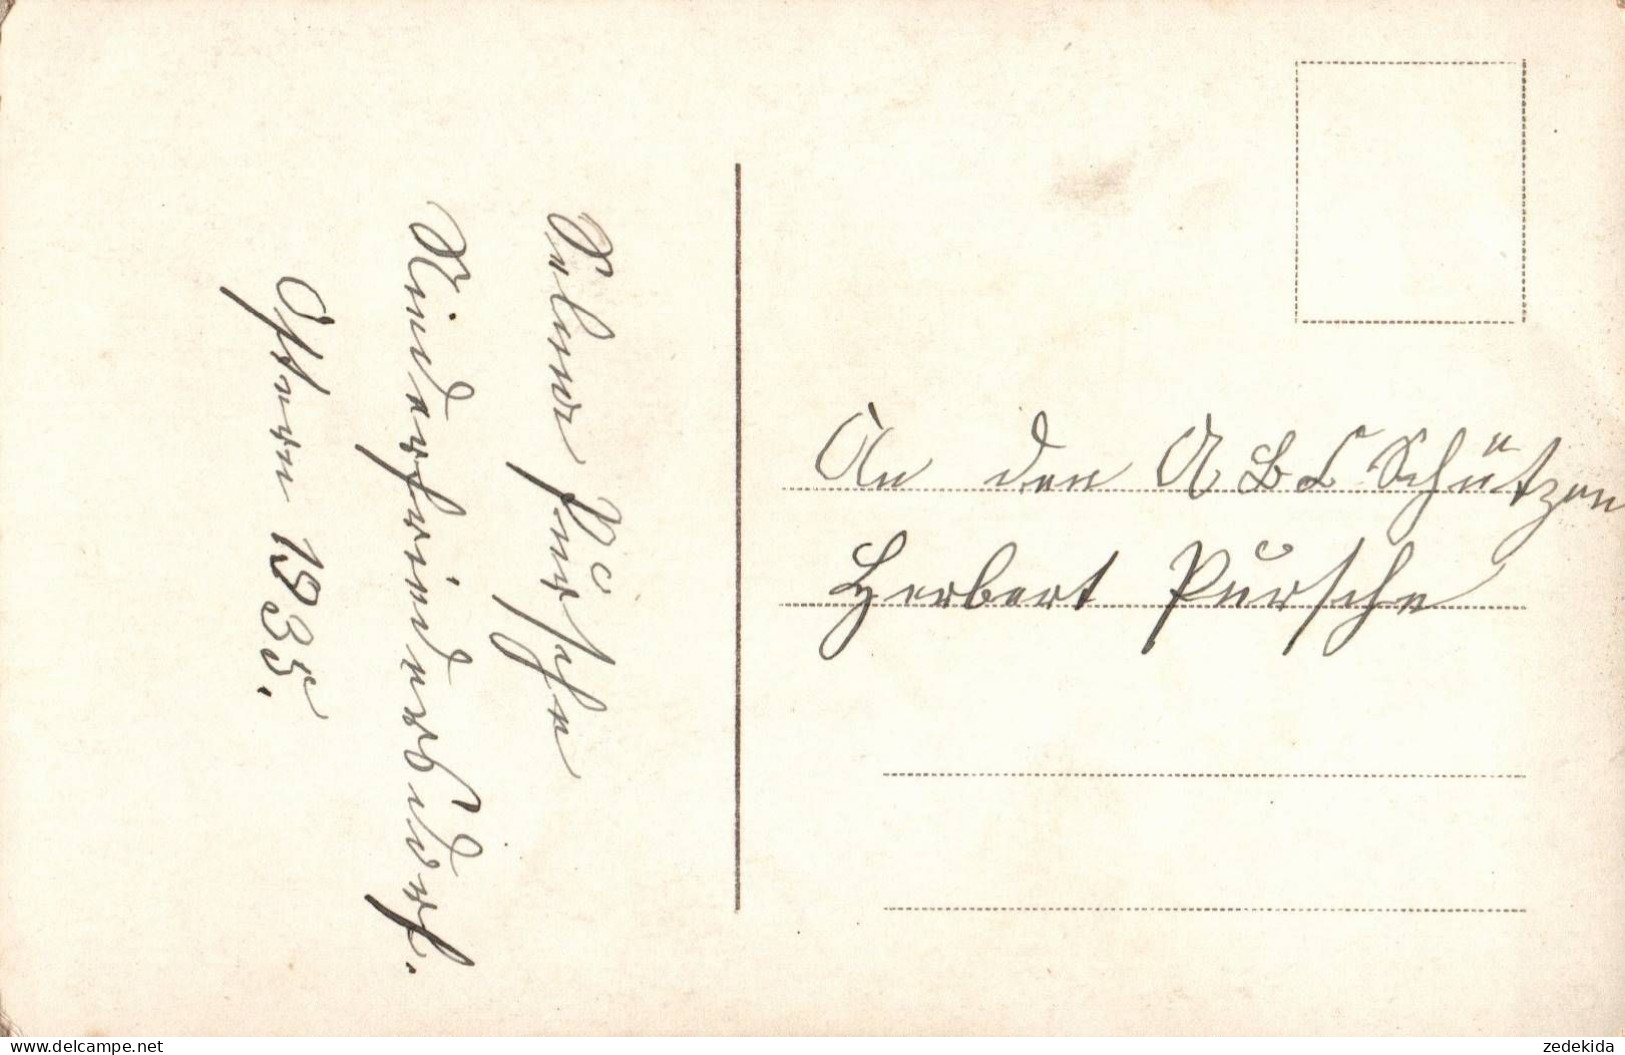 Selma Pursche
Niederfriedersdorf.
Ostern 1935.
An den A B C Schützen
Herbert Pursche
www.delcampe.net
zedekida